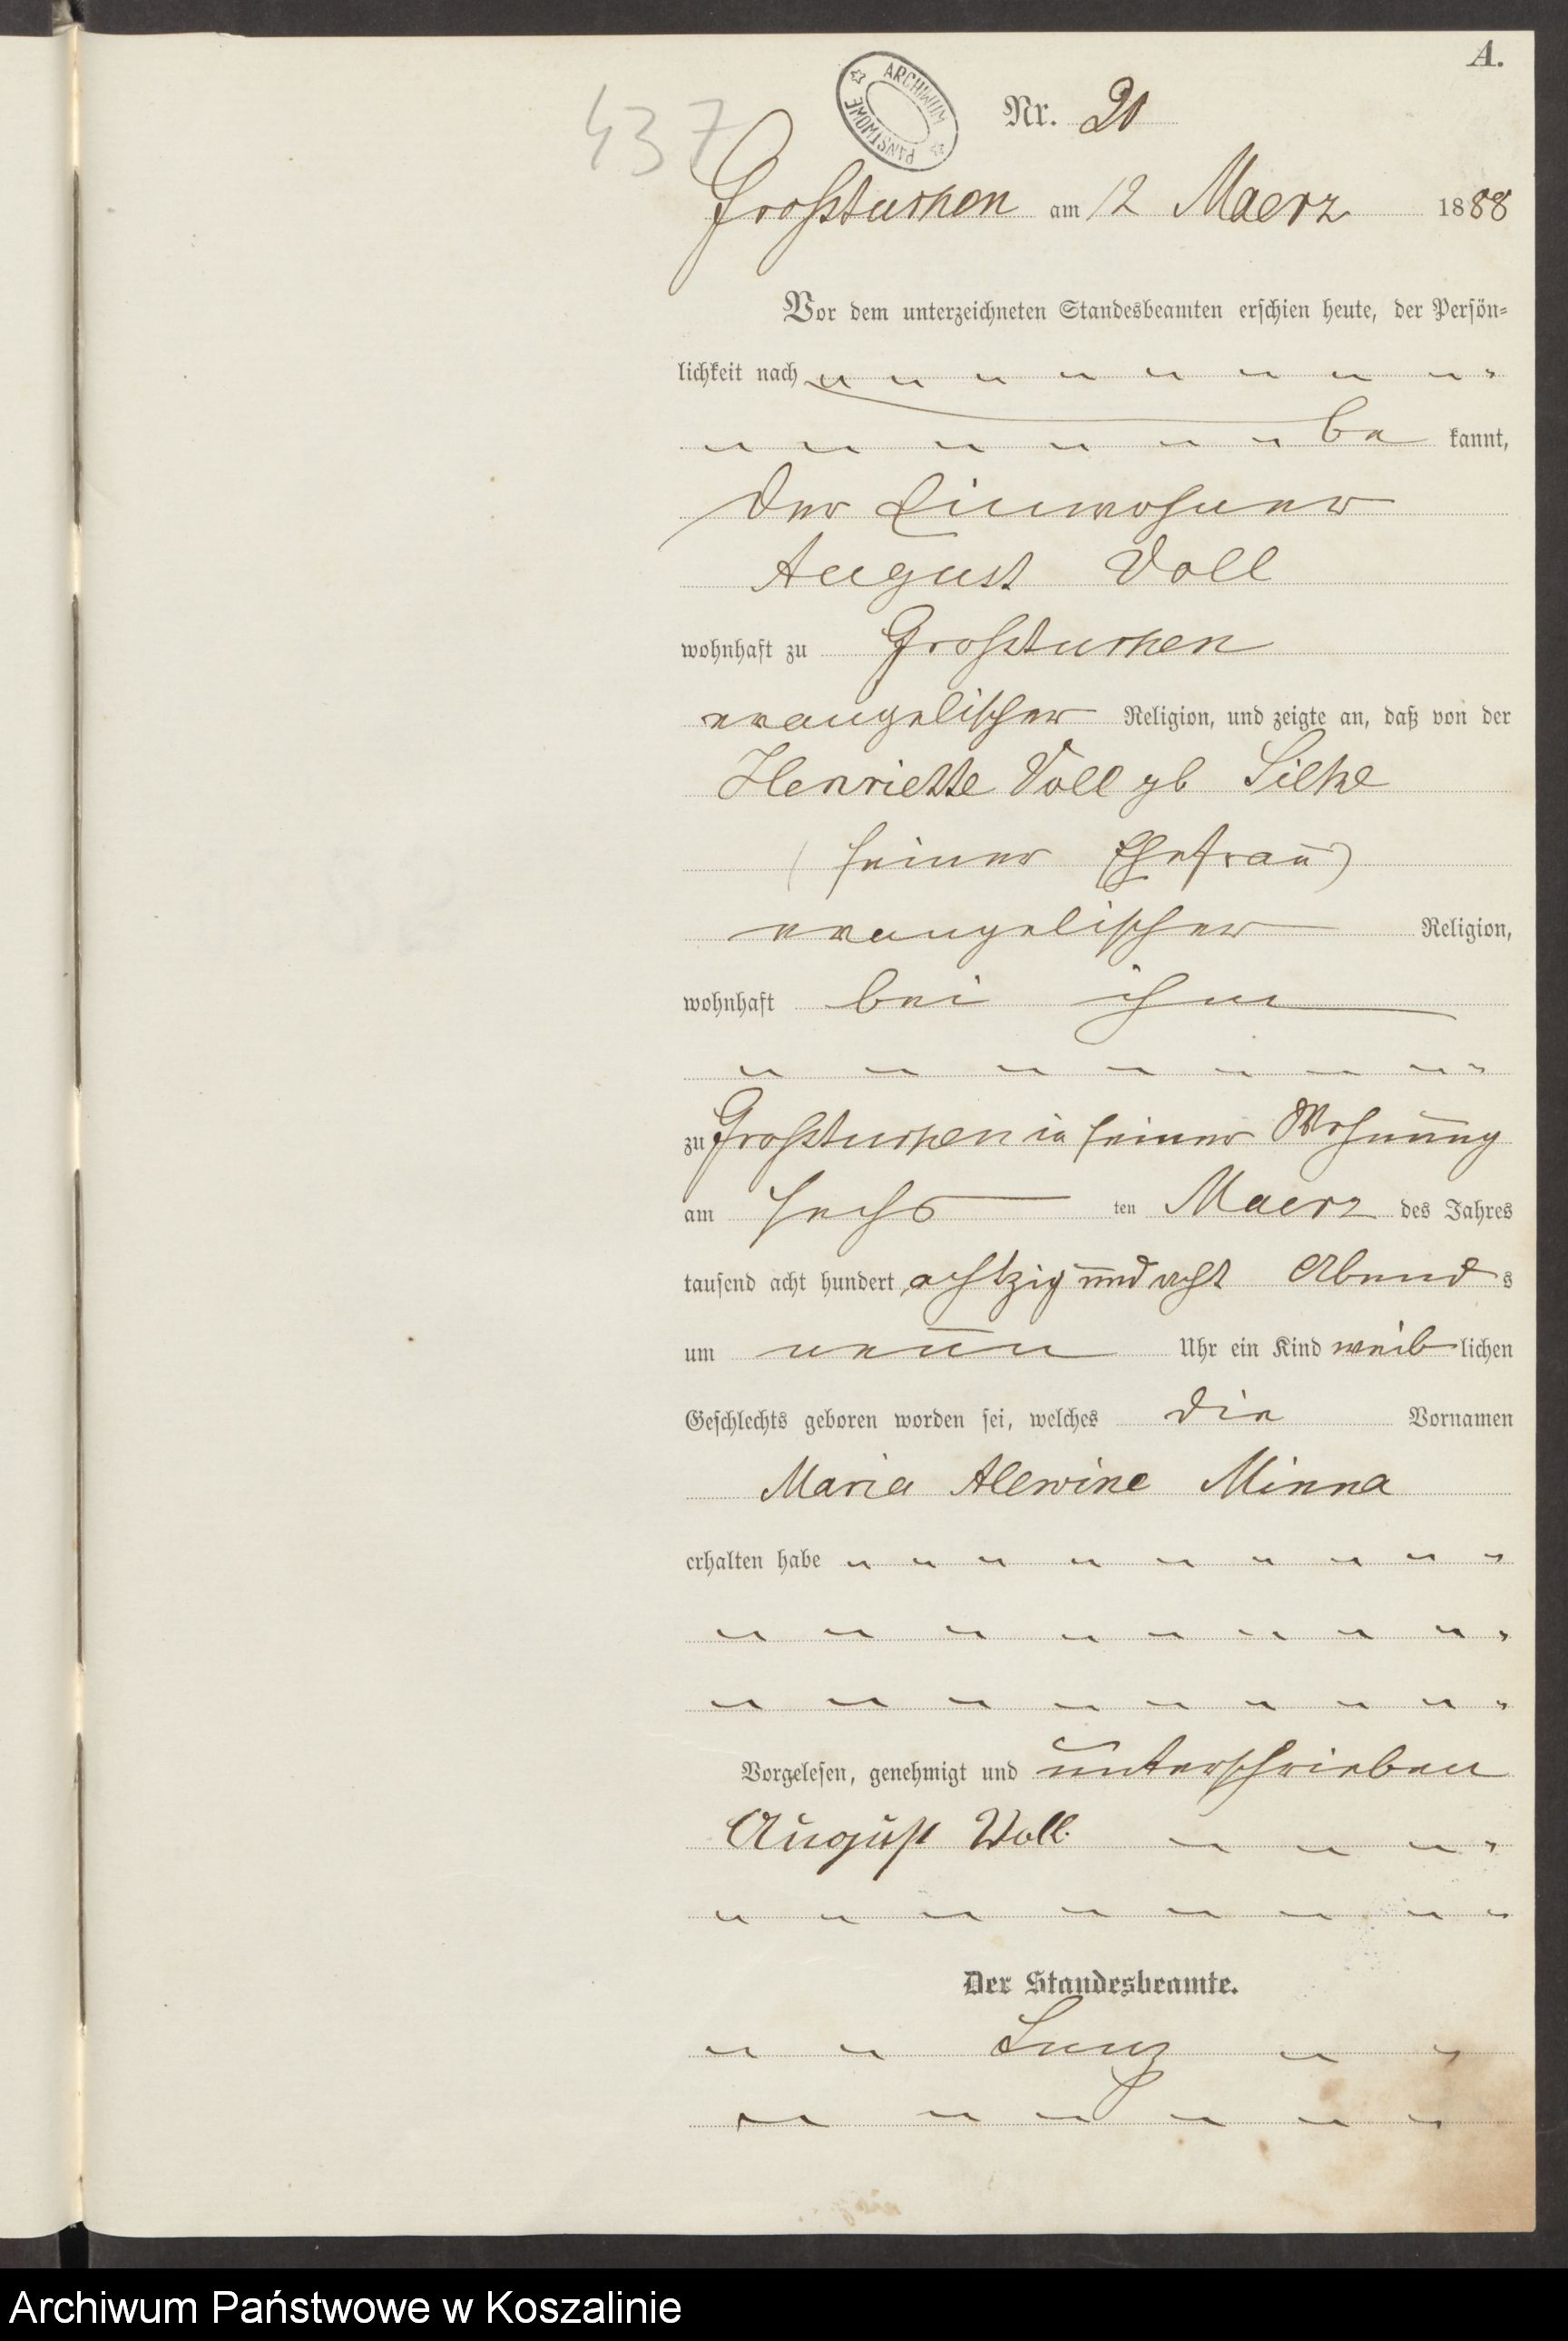 A.
437
ARCHIWUM PAŃSTWOWE
Nr. 20
Großtuchen am 12 Maerz 1888
Vor dem unterzeichneten Standesbeamten erschien heute, der Persön-
lichkeit nach
be kannt,
der Einwohner
August Voll
wohnhaft zu Großtuchen
evangelischer Religion, und zeigte an, daß von der
Henriette Voll gb
(seiner Ehefrau)
evangelischer Religion,
wohnhaft bei ihm
zu Großtuchen in seiner Wohnung
am sechs ten Maerz des Jahres
tausend acht hundert achtzig und acht Abend s
um neun Uhr ein Kind weib lichen
Geschlechts geboren worden sei, welches die Vornamen
Maria Alwine Minna
erhalten habe
Vorgelesen, genehmigt und unterschrieben
August Voll.
Der Standesbeamte.
Archiwum Państwowe w Koszalinie